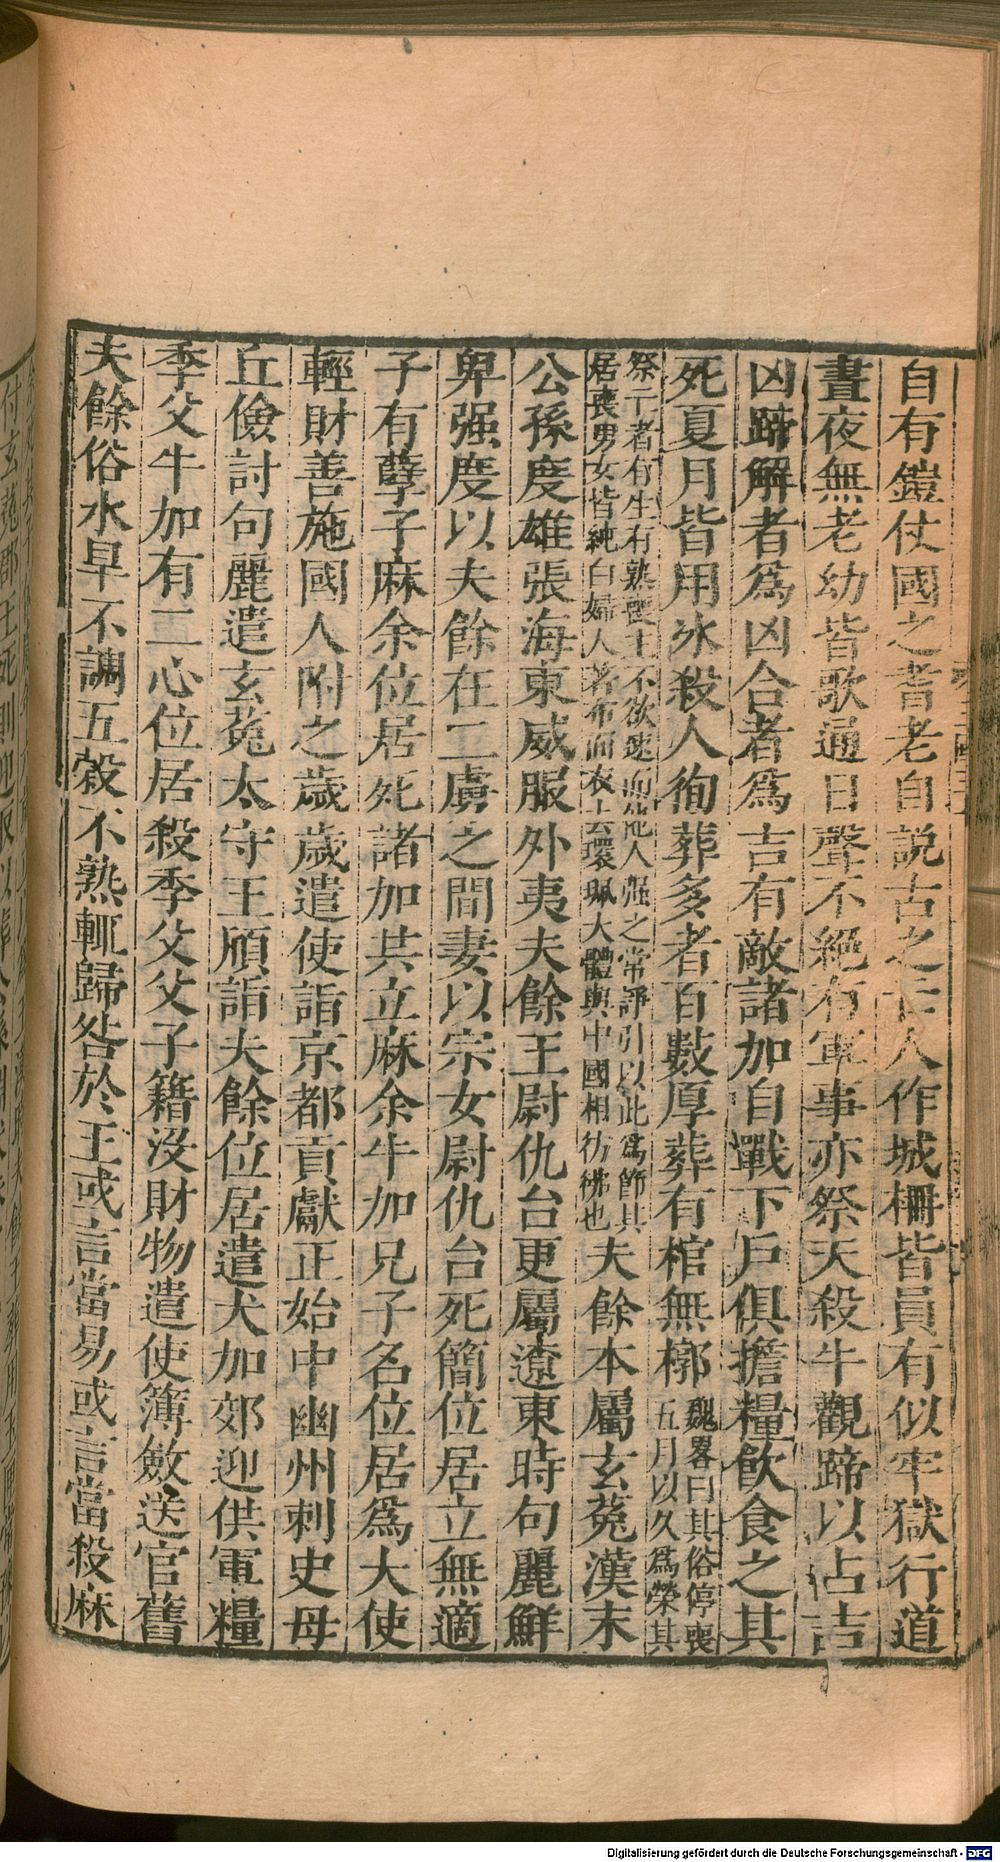 自有鎧仗國之耆老自説古之亡人作城柵皆員有似牢獄行道
晝夜無老幼皆歌通日聲不絕有軍事亦祭天殺牛觀蹄以占吉
凶蹄解者爲凶合者爲吉有敵諸加自戰下戶俱擔糧飲食之其
死夏月皆用氷殺人徇葬多者百數厚葬有棺無槨魏畧曰其俗停喪
五月以久爲榮其
祭亡者有生有熟喪主不欲速而他人强之常諍引以此爲節其
居喪男女皆純白婦人着布面衣去環珮大體與中國相彷彿也夫餘本屬玄菟漢末
公孫度雄張海東威服外夷夫餘王尉仇台更屬遼東時句麗鮮
卑强度以夫餘在二虜之間妻以宗女尉仇台死簡位居立無適
子有孽子麻余位居死諸加共立麻余牛加兄子名位居爲大使
輕財善施國人附之歲歲遣使詣京都貢獻正始中幽州刺史毋
丘儉討句麗遣玄菟太守王頎詣夫餘位居遣犬加郊迎供軍糧
季父牛加有二心位居殺季父父子籍沒財物遣使簿斂送官舊
夫餘俗水旱不調五穀不熟輒歸咎於王或言當易或言當殺麻
Digitalisierung gefördert durch die Deutsche Forschungsgemeinschaft - DFG